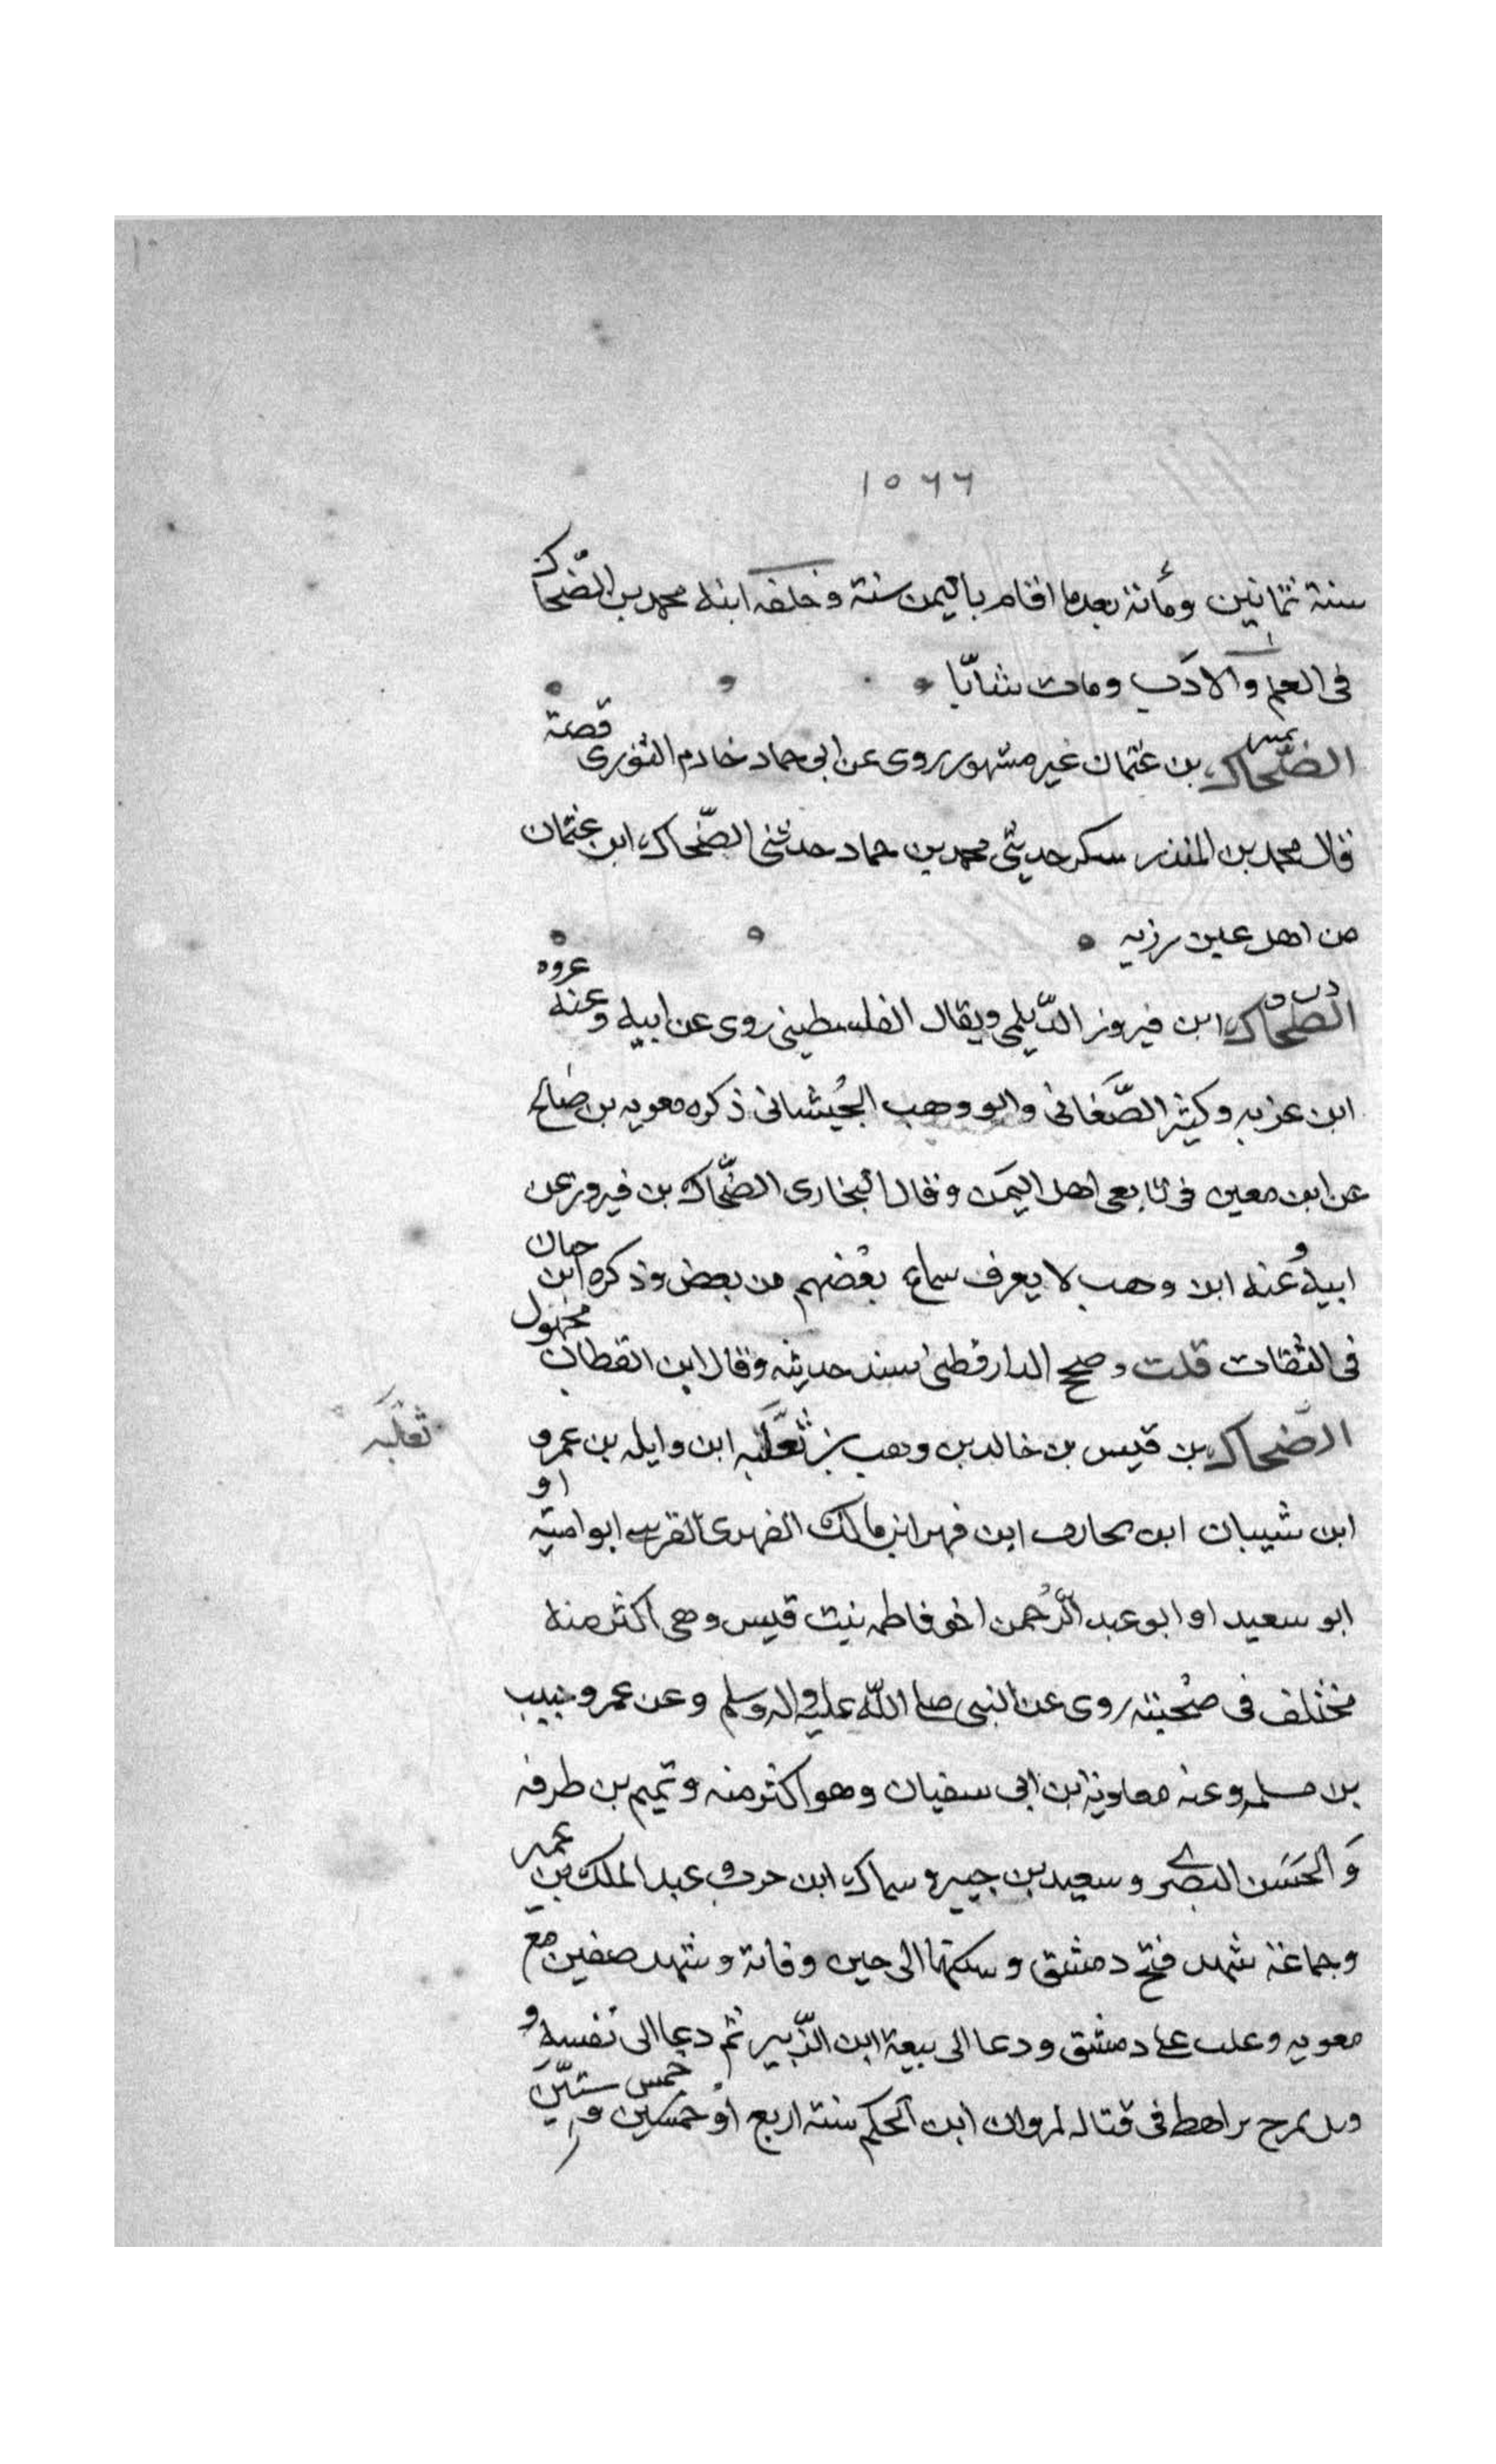 ١٠
١٥٦٦
سنة ثمانين ومأىة بعدما اقام باليمن سنة وخلفه ابنه محمد بن الضّحاك
فى العلم والادَب ومات شابّا
الضّحاك بن عثمان غير مشهور روى عن ابى حماد خادم الثورى قصة
قال محمد بن المنذر سكر حدثنى محمد بن حماد حدثنى الضّحاك ابن عثمان
من اهل عين رزبه
د ت ق
الضحاك ابن فيروز الدّيلمى ويقال الفلسطينى روى عن ابيه وعنه عروه
ابن عزيه وكثير الصَّغانى وابو وهب الجُيشانى ذكره معويه بن صالح
عن ابن معين فى تابعى اهل اليمَن وقال البخارى الضّحاك بن فيروز عن
ابيه وعنه ابن وهب لا يعرف سماع بعضهم من بعض وذكره ابن حبان
فى الثقات قلت وصحح الدارقطنى سند حديثه وقال ابن القطان مجهول
الضّحاك بن قيس بن خالد بن وهب بن ثعلَبه ابن وايله بن عمرو
ثعلَبه
ابن شيبان ابن محارب ابن فهر ابن مالك الفهرى القرسى ابو اميّه او
ابو سعيد او ابو عبد الرّحمن اخو فاطمه بنت قيس وهى اكثر منه
مختلف فى صُحبته روى عن النبى صلى اللّه عليه واله وسلم وعن عمر وحبيب
بن مسلمه وعنه معاوية ابن ابى سفيان وهو اكثر منه وتميم بن طرفه
وَالحَسَن البصرى وسعيد بن جبير وسماك ابن حرب وعبد الملك بن عمير
وجماعة شهد فتح دمشق وسكنها الى حين وفاته وشهد صفين مع
معويه وغلب على دمشق ودعا الى بيعة ابن الزّبير ثم دعا الى نفسه و
وىل بمرج راهط فى قتاله لمروان ابن الحكم سنة اربع او خمس وستّين